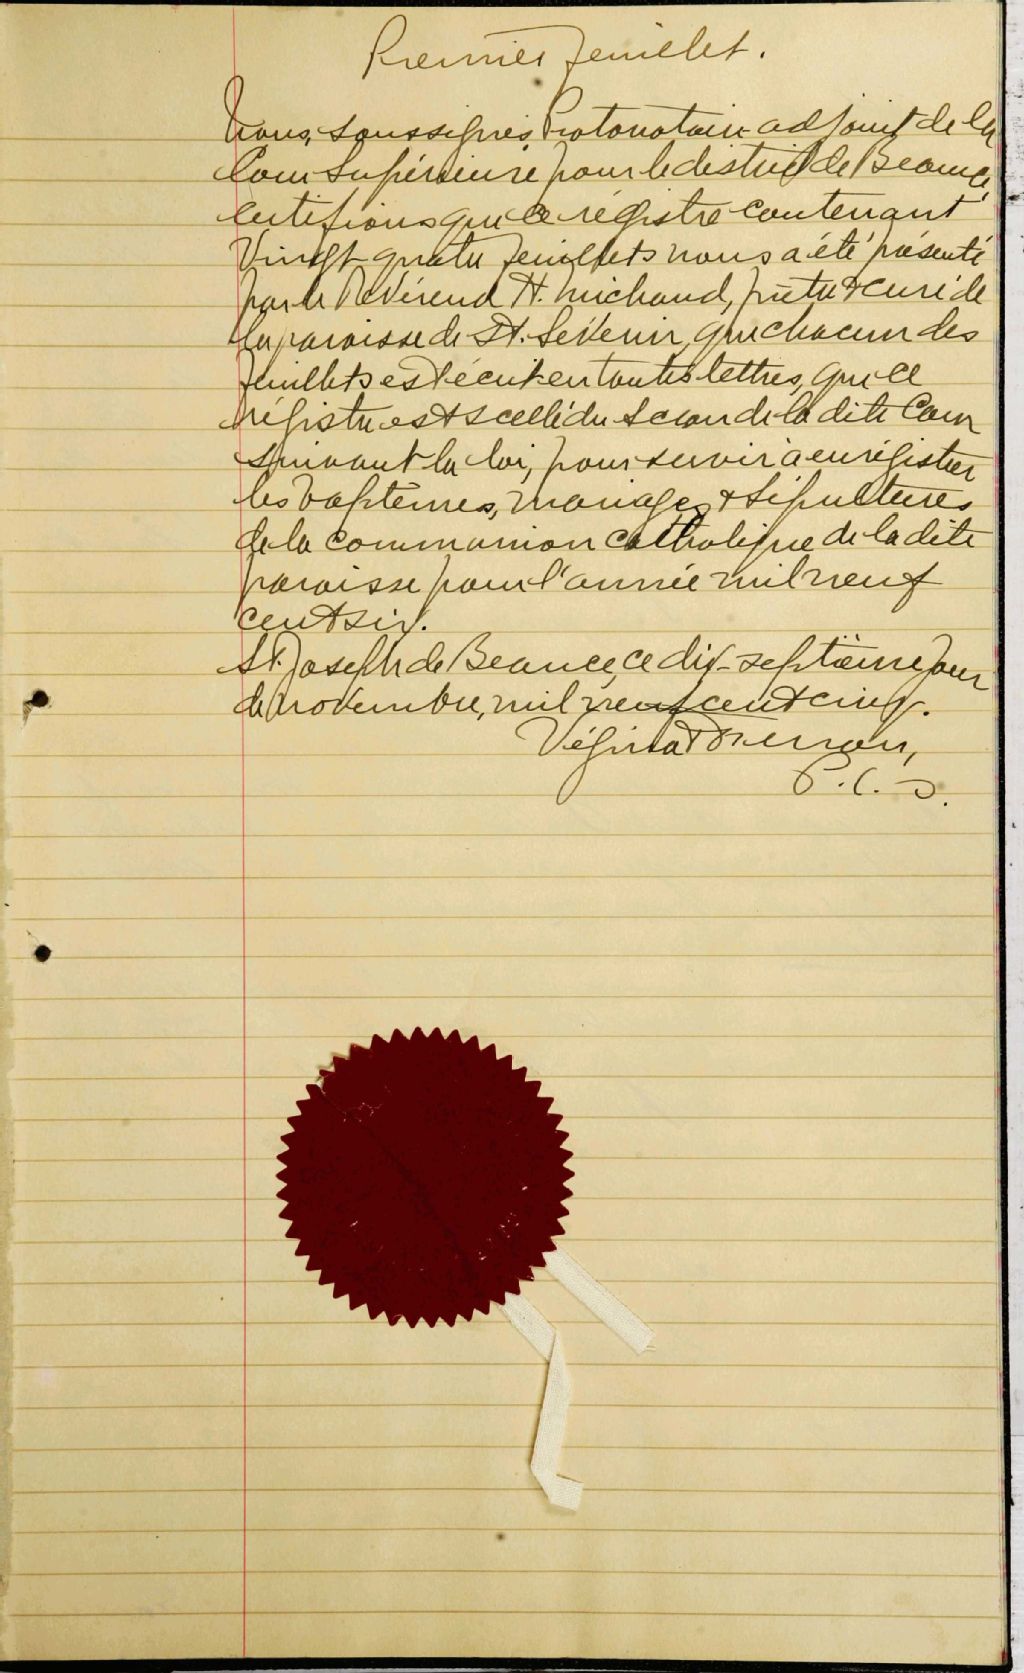 Premier feuillet.
Nous, soussignés, Protonotaire adjoint de la
Cour Supérieure pour le district de Beauce
certifions que ce régistre contenant
Vingt quatre feuillets nous a été présenté
par le Révérend H. Michaud, prêtre & curé de
la paroisse de St. Séverin, que chacun des
feuillets est écrit en toutes lettres, que ce
régistre est scellé du sceau de la dite Cour
suivant la loi, pour servir à enrégistrer
les baptêmes, mariages & sépultures
de la communion catholique de la dite
paroisse pour l'année mil neuf
cent six.
St. Joseph de Beauce, ce dix-septième jour
de novembre, mil neuf cent cinq.
Vézina &
P.C.S.